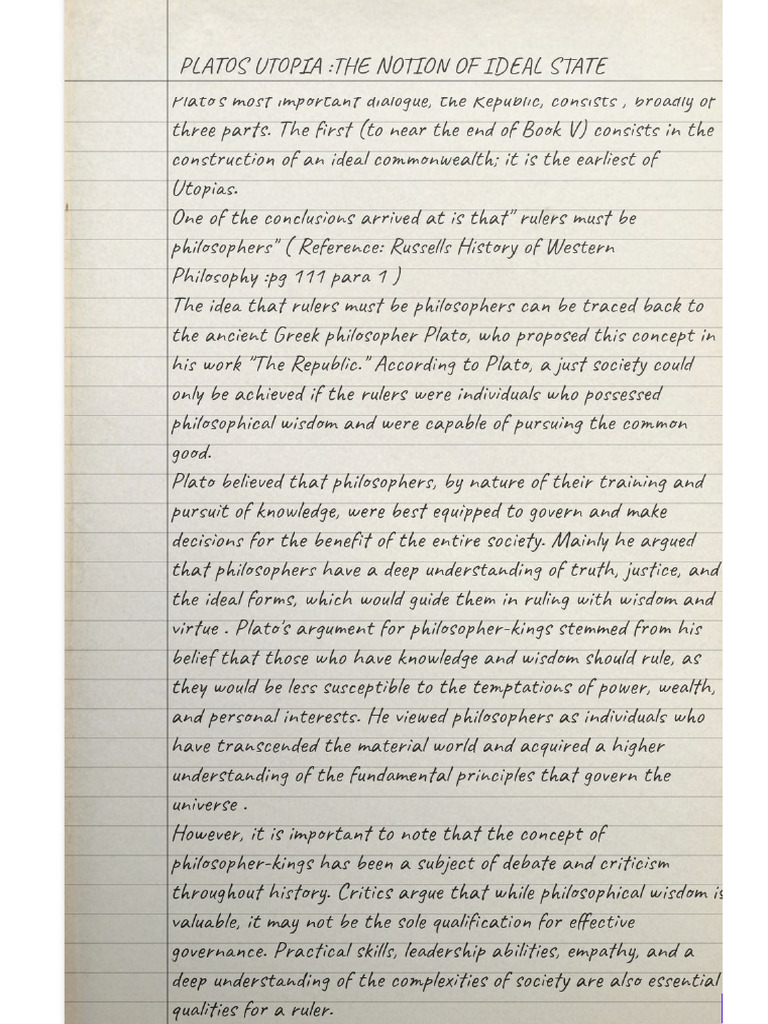 PLATOS UTOPIA :THE NOTION OF IDEAL STATE
Plato's most important dialogue, the Republic, consists , broadly of
three parts. The first (to near the end of Book V) consists in the
construction of an ideal commonwealth; it is the earliest of
Utopias.
One of the conclusions arrived at is that" rulers must be
philosophers" ( Reference: Russells History of Western
Philosophy :pg 111 para 1 )
The idea that rulers must be philosophers can be traced back to
the ancient Greek philosopher Plato, who proposed this concept in
his work "The Republic." According to Plato, a just society could
only be achieved if the rulers were individuals who possessed
philosophical wisdom and were capable of pursuing the common
good.
Plato believed that philosophers, by nature of their training and
pursuit of knowledge, were best equipped to govern and make
decisions for the benefit of the entire society. Mainly he argued
that philosophers have a deep understanding of truth, justice, and
the ideal forms, which would guide them in ruling with wisdom and
virtue . Plato's argument for philosopher-kings stemmed from his
belief that those who have knowledge and wisdom should rule, as
they would be less susceptible to the temptations of power, wealth,
and personal interests. He viewed philosophers as individuals who
have transcended the material world and acquired a higher
understanding of the fundamental principles that govern the
universe .
However, it is important to note that the concept of
philosopher-kings has been a subject of debate and criticism
throughout history. Critics argue that while philosophical wisdom is
valuable, it may not be the sole qualification for effective
governance. Practical skills, leadership abilities, empathy, and a
deep understanding of the complexities of society are also essential
qualities for a ruler.